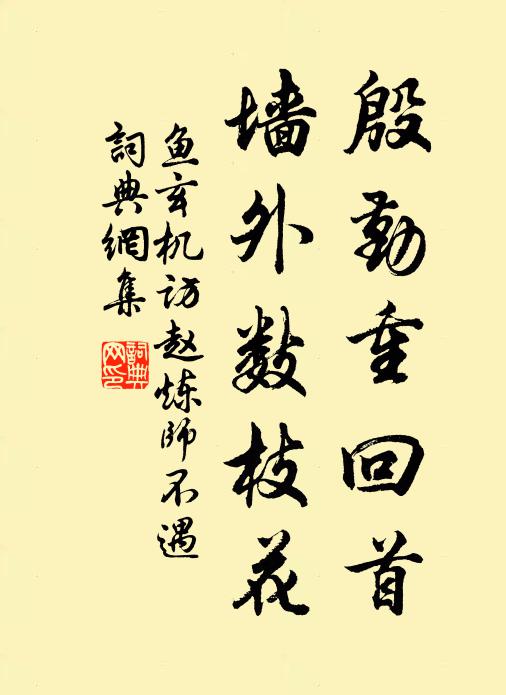 殷勤重回首
墙外数枝花
鱼玄机访赵炼师不遇
詞典網集
詞典网印